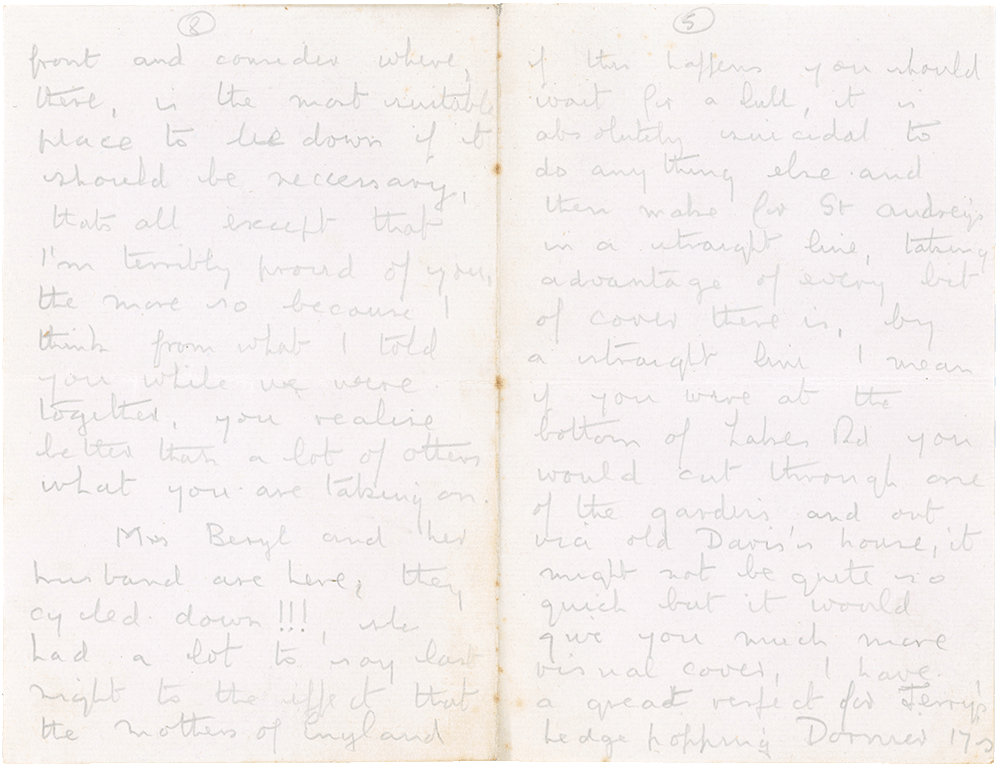 8
front and consider where,
there, is the most suitable
place to lie down if it
should be neccessary,
thats all except that
I'm terribly proud of you,
the more so because I
think from what I told
you while we were
together, you realise
better than a lot of others
what you are taking on.
Mrs Beryl and her
husband are here, they
cycled down!!!, she
had a lot to say last
night to the effect that
the mothers of England
5
if this happens you should
wait for a lull, it is
absolutely suicidal to
do anything else and
then make for St Audrey's
in a straight line, taking
advantage of every bit
of cover there is, by
a straight line I mean
if you were at the
bottom of Lakes Rd you
would cut through one
of the gardens and out
via old Davis's house, it
might not be quite so
quick but it would
give you much more
visual cover, I have
a great respect for Jerry's
hedge hopping Dornier 17s